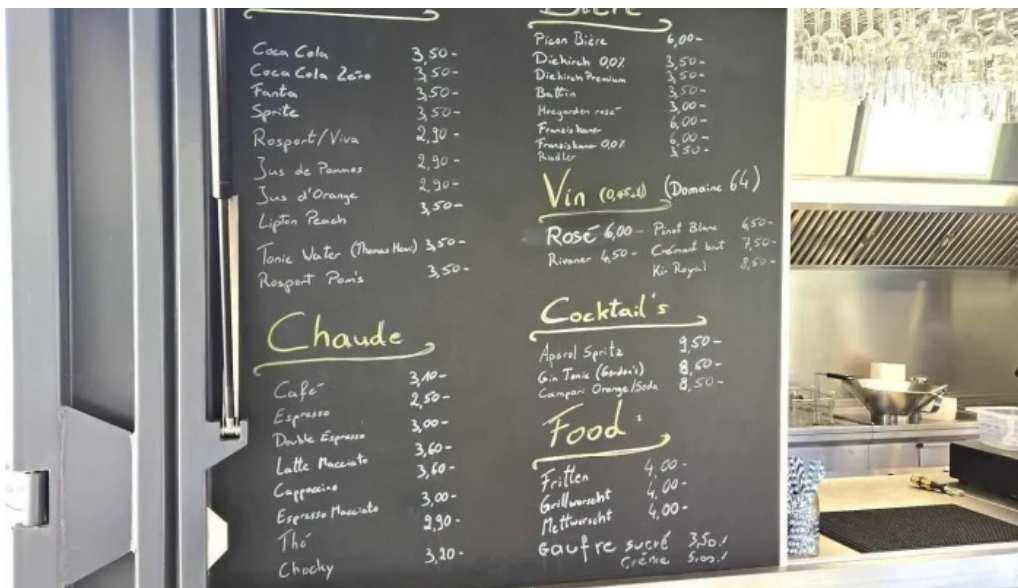 Coca Cola 3,50-
Coca Cola Zero 3,50-
Fanta 3,50-
Sprite 3,50-
Rosport/Viva 2,90-
Jus de Pommes 2,90-
Jus d'Orange 2,90-
Lipton Peach 3,50-
Tonic Water (Thomas Henri) 3,50-
Rosport Pom's 3,50-
Chaude
Café 3,10-
Espresso 2,50-
Double Espresso 3,00-
Latte Macciato 3,60-
Cappuccino 3,60-
Espresso Macciato 3,00-
Thé 2,90-
Chocky 3,20-
Bière
Picon Bière 6,00-
Diekirch 0,0% 3,50-
Diekirch Premium 3,50-
Battin 3,50-
Hoegarden rosé 3,00-
Franziskaner 6,00-
Franziskaner 0,0% 6,00-
Radler 3,50-
Vin (Domaine 64)
Rosé 6,00- Pinot Blanc 6,50-
Rivaner 4,50- Crémant brut 7,50-
Kir Royal 8,50-
Cocktail's
Aperol Spritz 9,50-
Gin Tonic (Gordon's) 8,50-
Campari Orange/Soda 8,50-
Food :
Fritten 4,00-
Grillwurscht 4,00-
Mettwurscht 4,00-
Gaufre sucré 3,50
crème 5,00